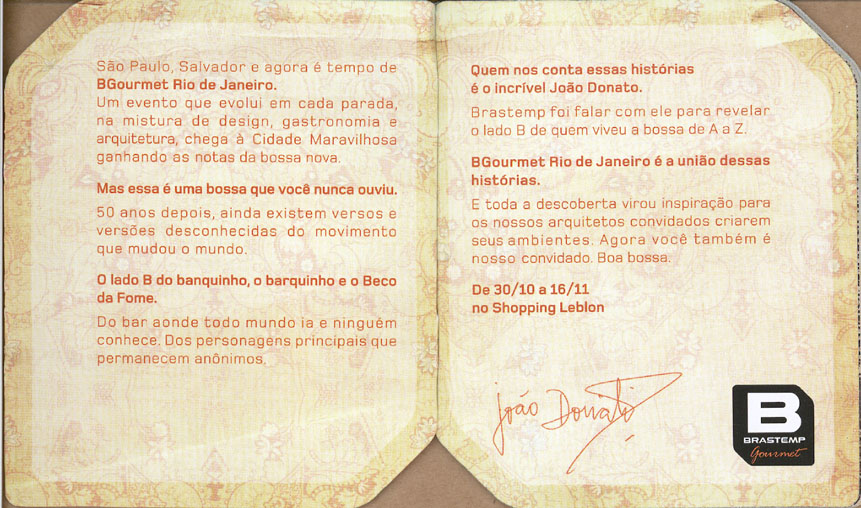 São Paulo, Salvador e agora é tempo de
BGourmet Rio de Janeiro.
Um evento que evolui em cada parada,
na mistura de design, gastronomia e
arquitetura, chega à Cidade Maravilhosa
ganhando as notas da bossa nova.
Mas essa é uma bossa que você nunca ouviu.
50 anos depois, ainda existem versos e
versões desconhecidas do movimento
que mudou o mundo.
O lado B do banquinho, o barquinho e o Beco
da Fome.
Do bar aonde todo mundo ia e ninguém
conhece. Dos personagens principais que
permanecem anônimos.
Quem nos conta essas histórias
é o incrível João Donato.
Brastemp foi falar com ele para revelar
o lado B de quem viveu a bossa de A a Z.
BGourmet Rio de Janeiro é a união dessas
histórias.
E toda a descoberta virou inspiração para
os nossos arquitetos convidados criarem
seus ambientes. Agora você também é
nosso convidado. Boa bossa.
De 30/10 a 16/11
no Shopping Leblon
João Donato
B
BRASTEMP
Gourmet